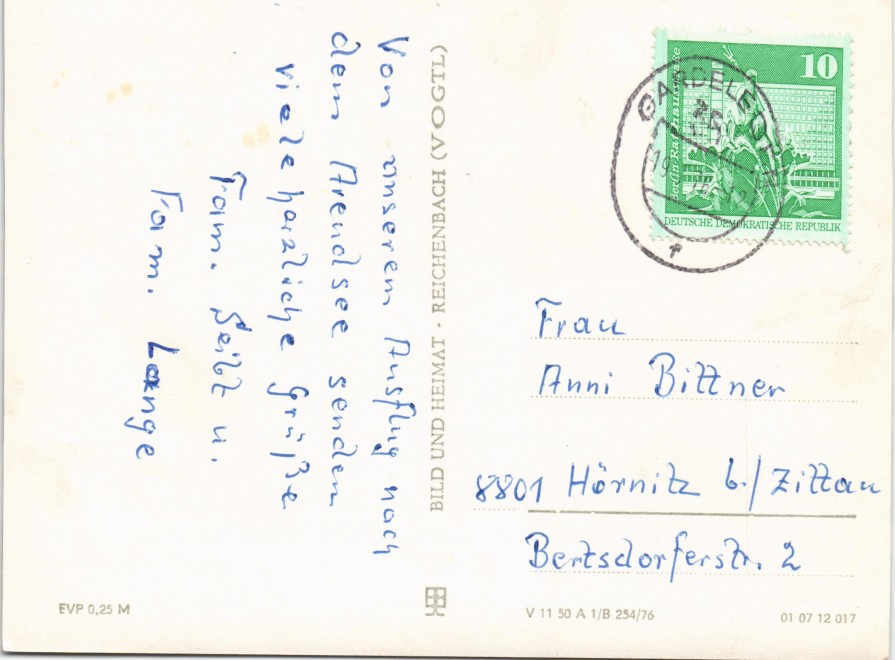 Von unserem Ausflug nach
dem Arendsee senden
viele herzliche Grüße
Fam. Seibt u.
Fam. Lange
BILD UND HEIMAT · REICHENBACH (VOGTL)
10
Berlin Rathausstraße
DEUTSCHE DEMOKRATISCHE REPUBLIK
GARDELEGEN
Frau
Anni Bittner
8801 Hörnitz b./Zittau
Bertsdorferstr. 2
EVP 0,25 M
V 11 50 A 1/B 254/76
01 07 12 017